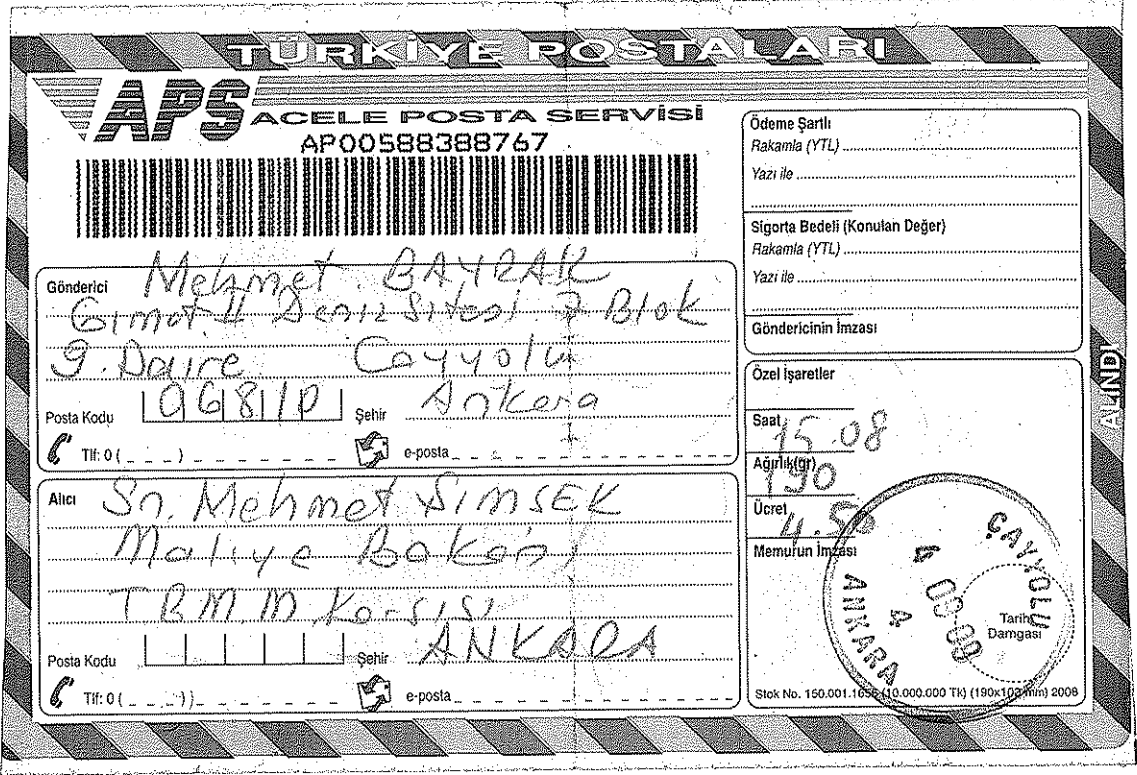 TÜRKİYE POSTALARI
APS
ACELE POSTA SERVİSİ
AP00588388767
Gönderici Mehmet BAYRAK
Gimat II Deniz Sitesi 7 Blok
9. Daire Çayyolu
Posta Kodu 06810 Şehir Ankara
Tlf: 0 ( _ _ _ ) _ _ _ _ _ _ _ e-posta
Alıcı Sn. Mehmet ŞimŞEK
Maliye Bakanı
T.B.M.M. Karşısı
Posta Kodu Şehir ANKARA
Tlf: 0 ( _ _ _ ) _ _ _ _ _ _ _ e-posta
Ödeme Şartlı
Rakamla (YTL)
Yazı ile
Sigorta Bedeli (Konulan Değer)
Rakamla (YTL)
Yazı ile
Göndericinin İmzası
Özel İşaretler
Saat 15.08
Ağırlık(gr) 190
Ücret 4.50
Memurun İmzası
Tarih Damgası
ÇAYYOLU
ANKARA
Stok No. 150.001.1656 (10.000.000 Tk) (190x102 mm) 2008
ALINDI